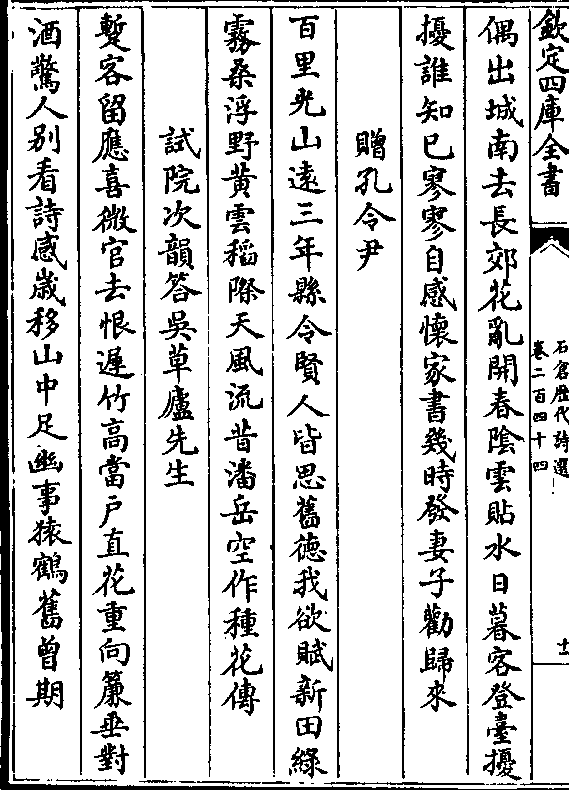 欽定四庫全書
石倉歷代詩選
卷二百四十四
十
偶出城南去長郊花亂開春陰雲貼水日暮客登臺擾
擾誰知已寥寥自感懷家書幾時發妻子勸歸來
贈孔令尹
百里光山遠三年縣令賢人皆思舊德我欲賦新田綠
霧桑浮野黃雲稻際天風流昔潘岳空作種花傳
試院次韻答吳草廬先生
蹔客留應喜微官去恨遲竹高當戶直花重向簾垂對
酒驚人别看詩感歲移山中足幽事猿鶴舊曾期